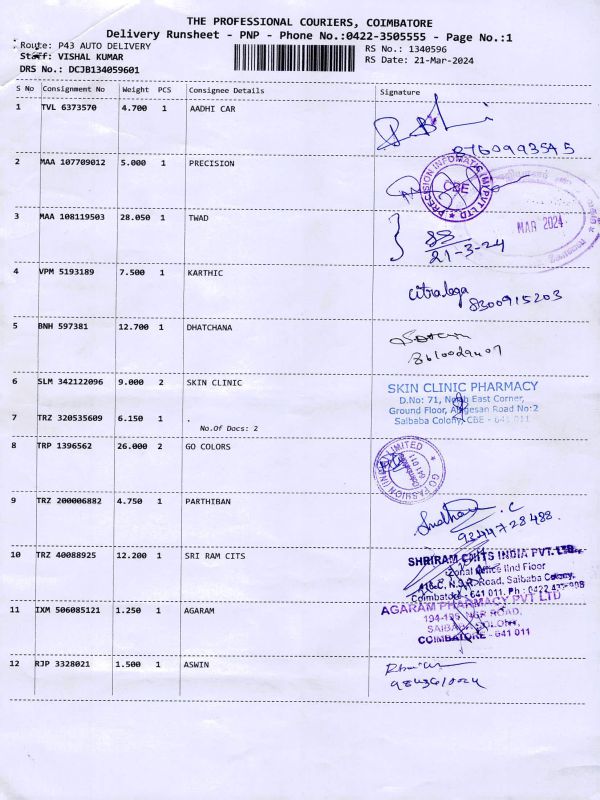 THE PROFESSIONAL COURIERS, COIMBATORE
Delivery Runsheet - PNP - Phone No.:0422-3505555 - Page No.:1
Route: P43 AUTO DELIVERY
RS No.: 1340596
Staff: VISHAL KUMAR
RS Date: 21-Mar-2024
DRS No.: DCJB134059601
S No Consignment No Weight PCS Consignee Details Signature
1 TVL 6373570 4.700 1 AADHI CAR
2 MAA 107709012 5.000 1 PRECISION
PRECISION INFOMATIC (M) PVT LTD
CBE
3 MAA 108119503 28.050 1 TWAD
MAR 2024
21-3-24
4 VPM 5193189 7.500 1 KARTHIC
8300915203
5 BNH 597381 12.700 1 DHATCHANA
6 SLM 342122096 9.000 2 SKIN CLINIC
SKIN CLINIC PHARMACY
D.No: 71, North East Corner,
Ground Floor, Alagesan Road No:2
Saibaba Colony, CBE - 641 011
7 TRZ 320535609 6.150 1 .
No.Of Docs: 2
8 TRP 1396562 26.000 2 GO COLORS
GO FASHION (INDIA) LIMITED
641 011
9 TRZ 200006882 4.750 1 PARTHIBAN
9344728488
10 TRZ 40088925 12.200 1 SRI RAM CITS
SHRIRAM CHITS INDIA PVT. LTD.
Zonal Office IInd Floor
Road, Saibaba Colony,
Coimbatore - 641 011. Ph : 0422
11 IXM 506085121 1.250 1 AGARAM
AGARAM PHARMACY PVT LTD
NSR ROAD,
SAIBABA COLONY,
COIMBATORE - 641 011
12 RJP 3328021 1.500 1 ASWIN